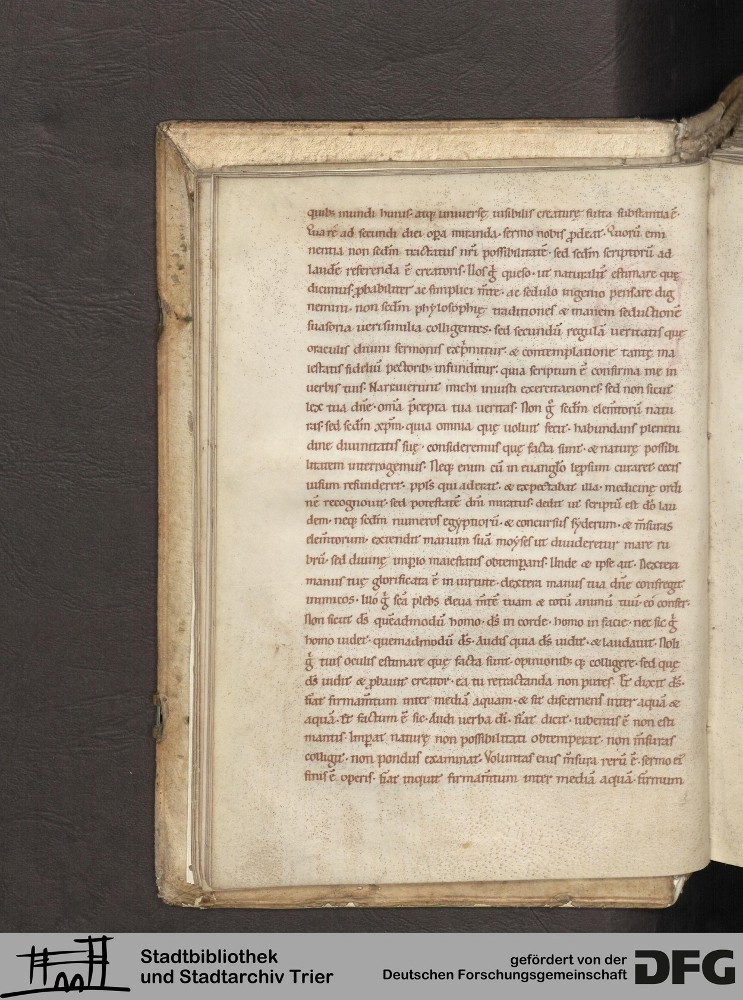 quib; mundi huius· atq; uniuersę uisibilis creaturę finita substantia ē·
Quare ad secundi diei opa miranda· sermo nobis ꝓdeat· Quorū emi
nentia non scd̄m tractatus nr̄i possibilitatē· sed scd̄m scriptorū ad
laudē referenda ē creatoris· Uos g̊ queso· ut naturalit̄ estimare quę
dicimus ꝓbabilit̄ ac simplici m̄te· ac sedulo ingenio pensare dig
nemini· non scd̄m phylosophię traditiones & inanem seductionē
suasoria uerisimilia colligentes· sed secundū regulā ueritatis quę
oraculis diuini sermonis exp̄mitur· & contemplatione tantę ma
iestatis fideliū pectorib; infunditur· quia scriptum ē confirma me in
uerbis tuis· Narrauerunt michi iniusti exercitationes sed non sicut
lex tua dn̄e· om̄a p̄cepta tua ueritas· Non g̊ scd̄m elem̄torū natu
ras· sed scd̄m xpm̄· quia omnia quę uoluit fecit· habundans plenitu
dine diuinitatis suę· consideremus quę facta sunt· & naturę possibi
litatem interrogemus· Neq; enim cū in euanglo lepsum curaret· cecis
uisum refunderet· ppls qui aderat· & exspectabat illa· medicinę ordi
nē recognouit· sed potestatē dn̄i miratus· dedit ut scriptū est dō lau
dem· neq; scd̄m numeros egyptiorū· & concursus syderum· & m̄suras
elem̄torum· extendit manum suā moyses ut diuideretur mare ru
brū· sed diuinę imp̄io maiestatis obtemp̄ans· Unde & ipse ait· Dextera
manus tuę glorificata ē in uirtute· dextera manus tua dn̄e confregit
inimicos· Illo g̊ sc̄a plebs eleua m̄te tuam & totū animū tuū· eo confer·
Non sicut ds̄ quēadmodū homo· ds̄ in corde· homo in facie· nec sic g̊
homo uidet· quemadmodū ds̄· Audis quia ds̄ uidit· & laudauit· Noli
g̊ tuis oculis estimare quę facta sunt· opinionib; q; colligere· sed quę
ds̄ uidit & ꝓbauit creator· ea tu retractanda non putes· Et dixit ds̄·
fiat firmam̄tum inter mediā aquam· & sit discernens inter aquā &
aquā· Et factum ē sic· Audi uerba dī· fiat dicit· iubentis ē non esti
mantis· Imp̄at naturę non possibilitati obtemperat· non m̄suras
colligit· non pondus examinat· Voluntas eius m̄sura rerū ē· sermo ei
finis ē operis· fiat inquit firmam̄tum inter mediā aquā· firmum
Stadtbibliothek
und Stadtarchiv Trier
gefördert von der
Deutschen Forschungsgemeinschaft
DFG